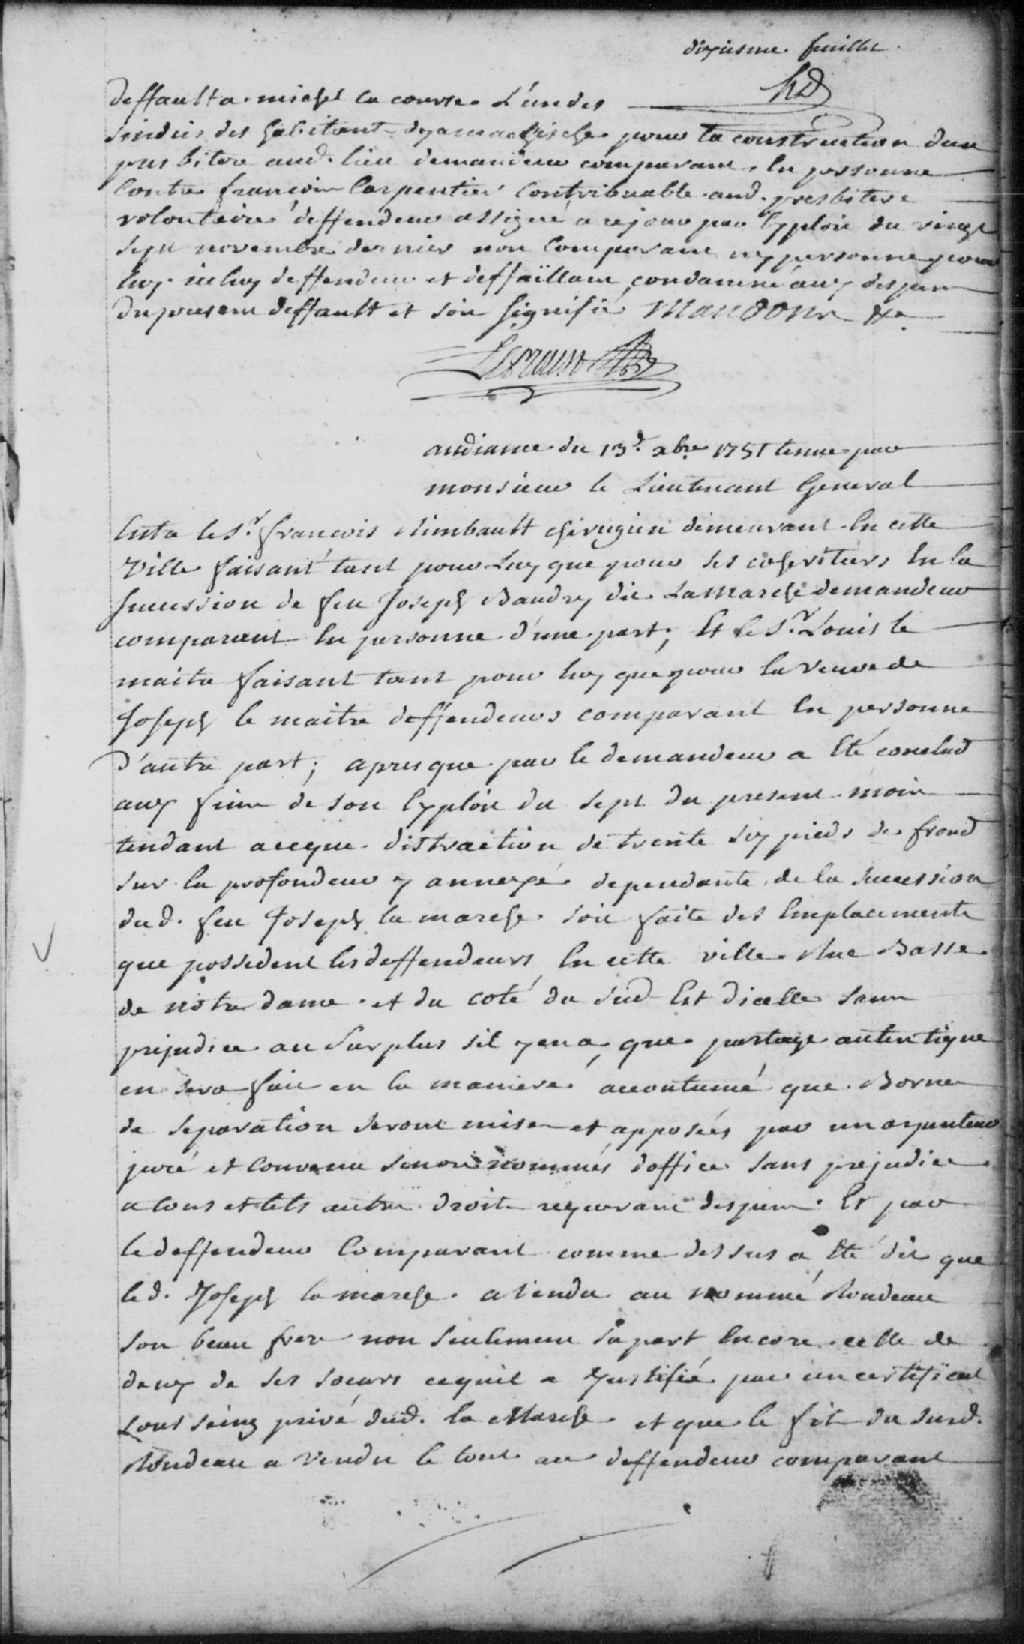 dixiesme feuillet
deffault a michel la course L'un des
sindics des habitant dyamachiche pour la construction dun
presbitere aud. lieu demandeur comparant en personne
Contre francois Carpentier Contribuable aud. presbitere
volontaire deffendeur assigné a ce jour par Exploit du vingt
sept novembre dernier non Comparant ny personne pour
luy iceluy deffendeur et deffaillant condamné aux despens
du present deffault et soit signifié Mandons &c
audiance du 13e xbre 1751 tenue par
monsieur le Lieutenant General
Entre le Sr. francois Rimbault chirugien demeurant En cette
Ville faisant tant pour Luy que pour ses coheritiers En la
succession de feu Joseph Baudry dit Lamarche demandeur
comparant En personne d'une part; Et le Sr. Louis le
maitre faisant tant pour luy que pour la veuve de
Joseph le maitre deffendeurs comparant En personne
D'autre part; apres que par le demandeur a Eté conclud
aux fins de son Exploit du sept du present mois
tendant acequé distraction de trente six pieds de frond
sur la profondeur y annexé dependante de la succession
dud. feu Joseph la marche soit faite des Emplacements
que possedent les deffendeurs En cette ville Rue Basse
de notre dame et du coté du sud Est dicelle sans
prejudice au surplus sil yena, que partage autentique
en sera fait en la maniere accoutumé que Borne
de separation seront mise et apposées par un arpenteur
juré et convenu sinon nommés doffice sans prejudice
a tous et tels autre droits requerant despens. Et par
le deffendeur Comparant comme dessus a Eté dit que
led. Joseph la marche a Vendu au nommé Rondeau
son beau frere non seulement sa part Encore celle de
deux de ses soeurs cequil a Justifié par un certificat
sous seing privé dud. la Marche et que le fils du sud.
Rondeau a Vendu le tout au deffendeur comparant